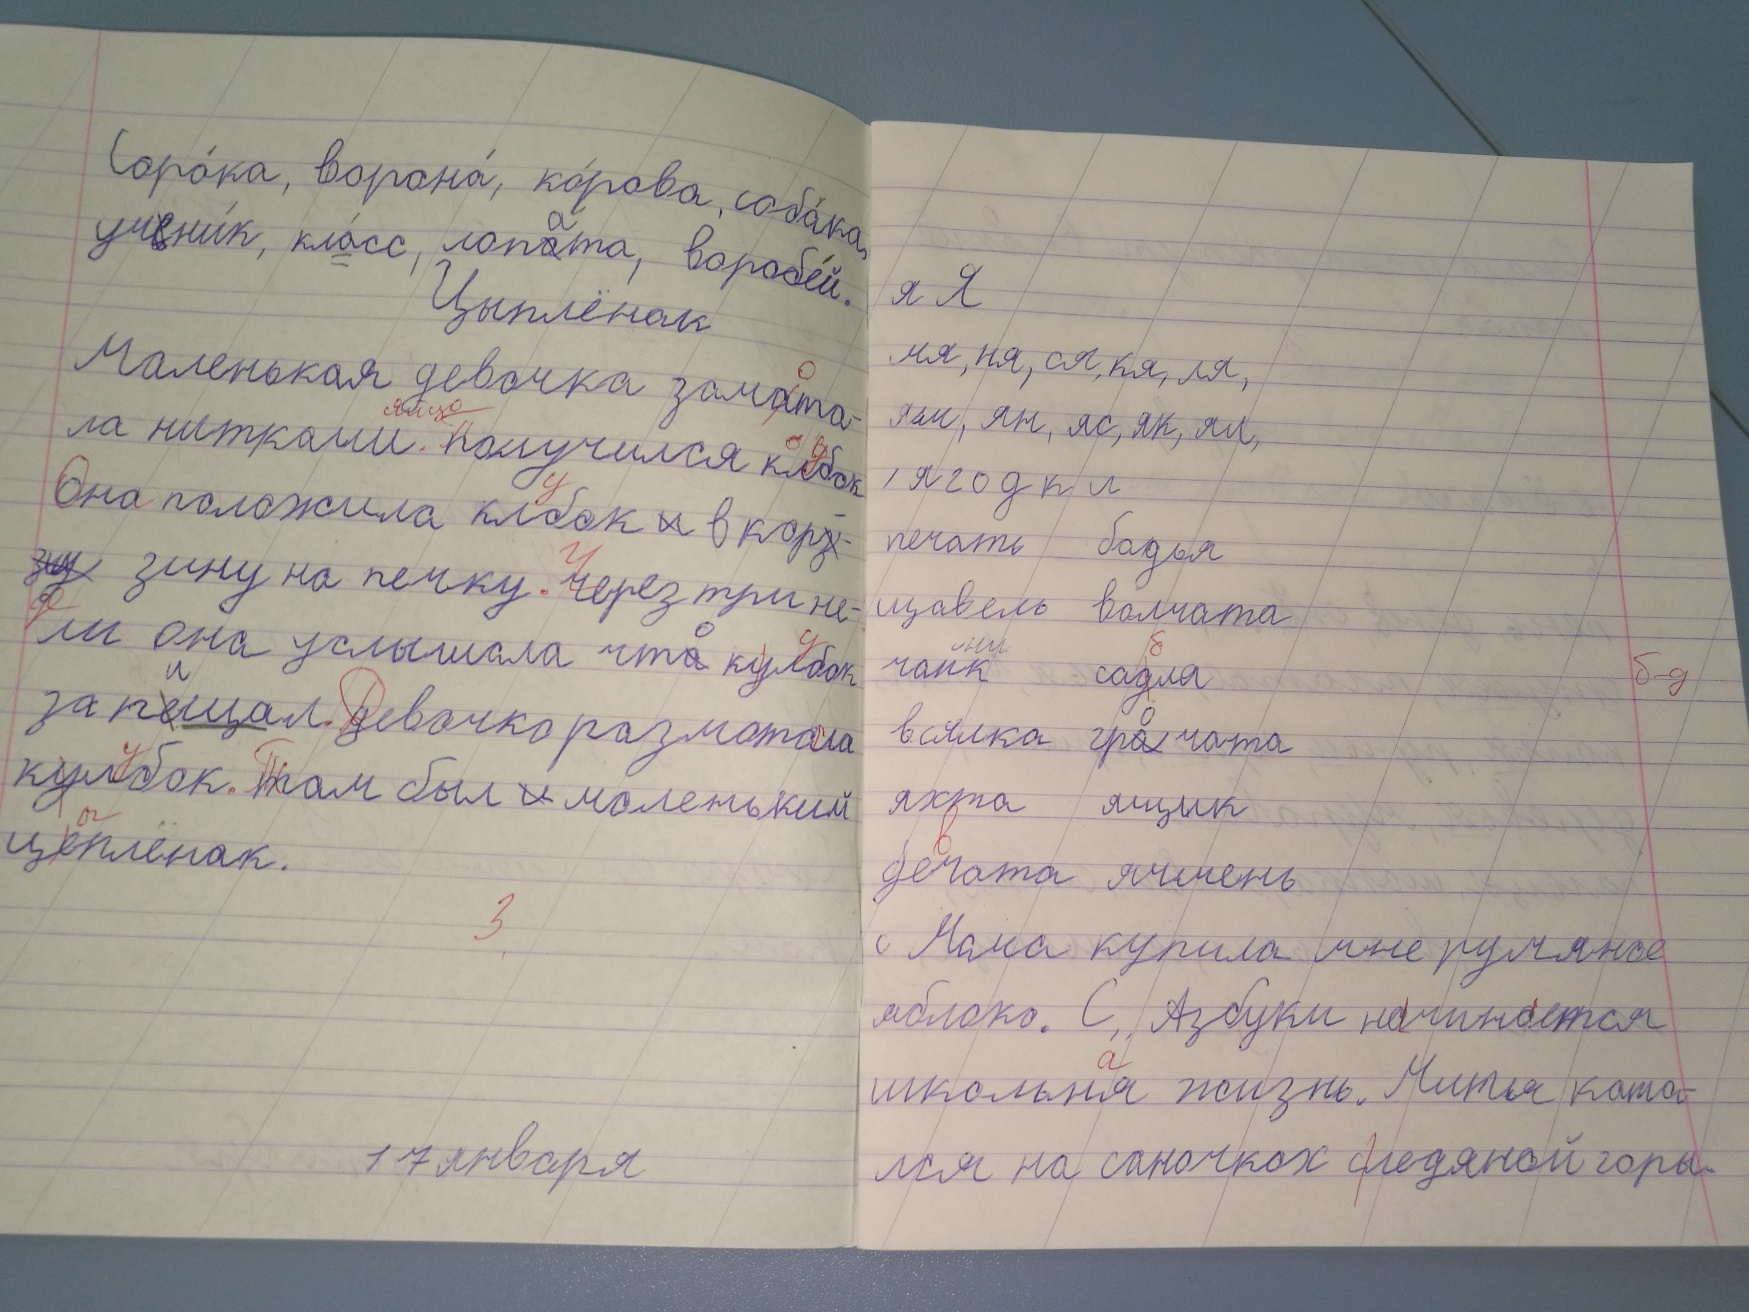 Соро́ка, ворона́, ко́рова, соба́ка,
учени́к, кла́сс, лопата, воробе́й.
Цыплёнак
Маленькая девочка замота-
ла нитками. яйцо Получился клубок
Она положила клубок и в кор-
зину на печку. Через три не-
де
ли она услышала что кулбок
запищал. Девочка размотала
кулбок. Там был и маленький
цеплёнак.
3
17 января
я Я
мя, ня, ся, кя, ля,
ям, ян, яс, як, ял,
1 я г о д к и
печать бадья
щавель волчата
чайник садля б б-д
всялка грочата
яхта ящик
девчата ячмень
Мама купила мне румяное
яблоко. С, Азбуки начинается
школьная жизнь. Митья ката-
лся на саночках с ледяной горы.